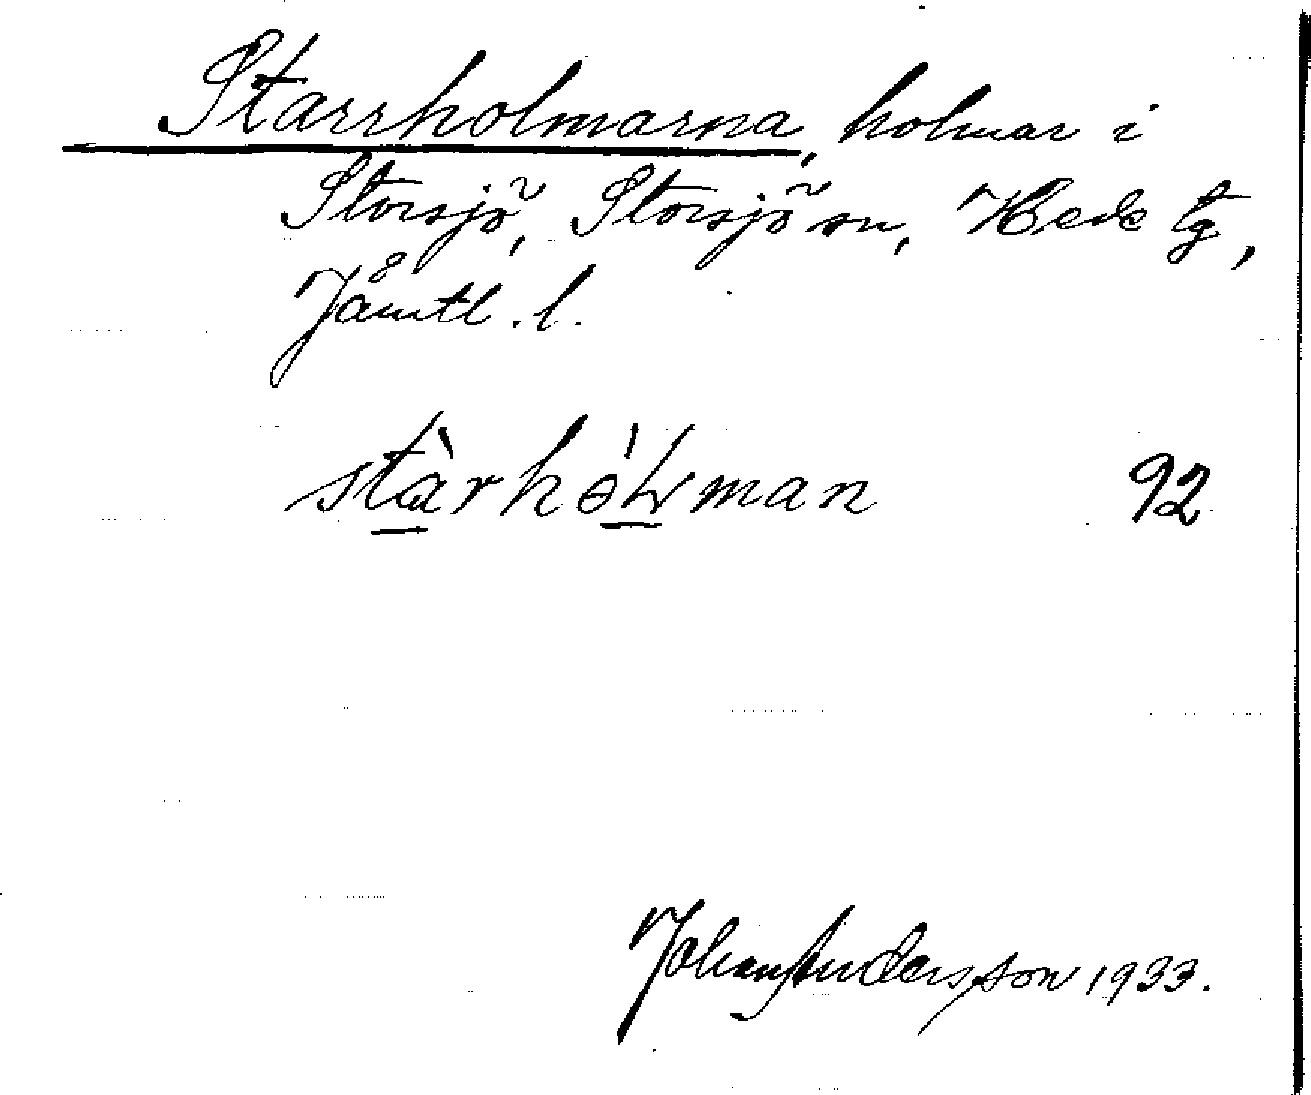 Starrholmarna, holmar i
Storsjö, Storsjö sn, Hede tg,
Jämtl. l.
92
Johan Andersson 1933.